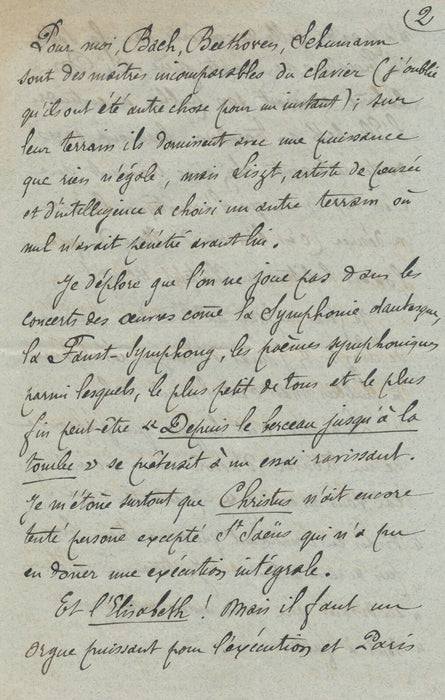 2
Pour moi, Bach, Beethoven, Schumann
sont des maîtres incomparables du clavier (j'oublie
qu'ils ont été autre chose pour un instant); sur
leur terrain ils dominent avec une puissance
que rien n'égale, mais Liszt, artiste de pensée
et d'intelligence a choisi un autre terrain où
nul n'avait pénétré avant lui.
Je déplore que l'on ne joue pas dans les
concerts des œuvres come la Symphonie dantesque,
la Faust-Symphony, les poèmes symphoniques
parmi lesquels, le plus petit de tous et le plus
fin peut-être « Depuis le berceau jusqu'à la
tombe » se prêterait à un essai ravissant.
Je m'étone surtout que Christus n'ait encore
tenté persone excepté St Saëns qui n'a pu
en doner une exécution intégrale.
Et l'Elisabeth ! Mais il faut un
orgue puissant pour l'exécution et Paris